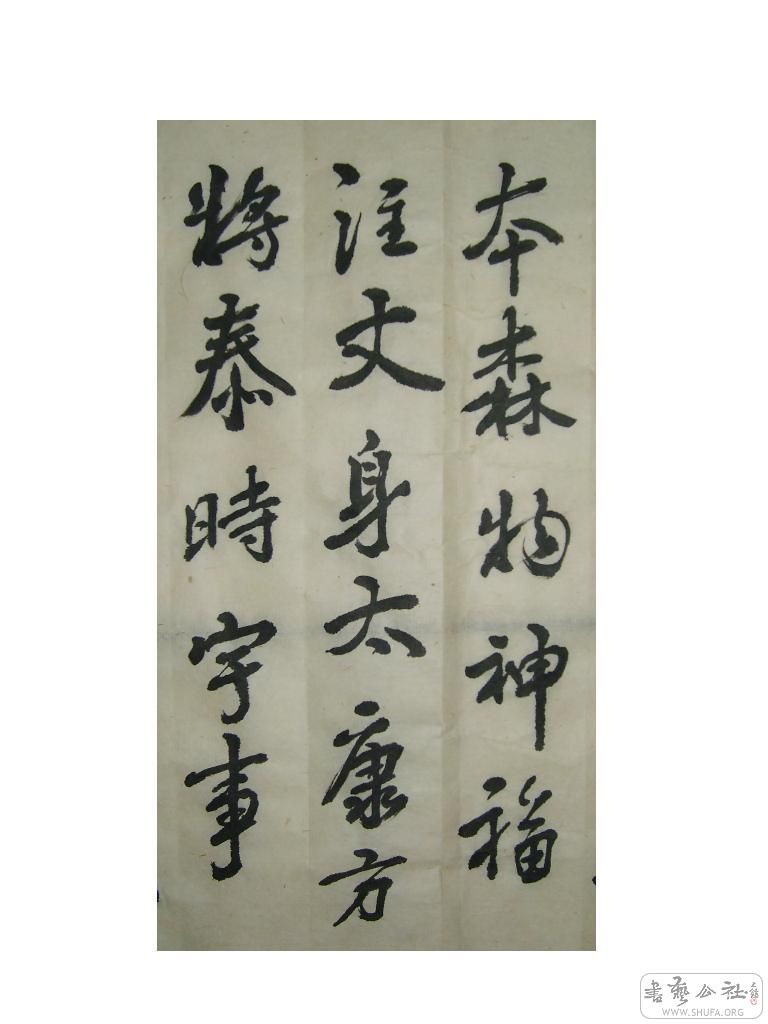 本森物神福
注文身太康方
將泰時宇事
書藝公社
WWW.SHUFA.ORG